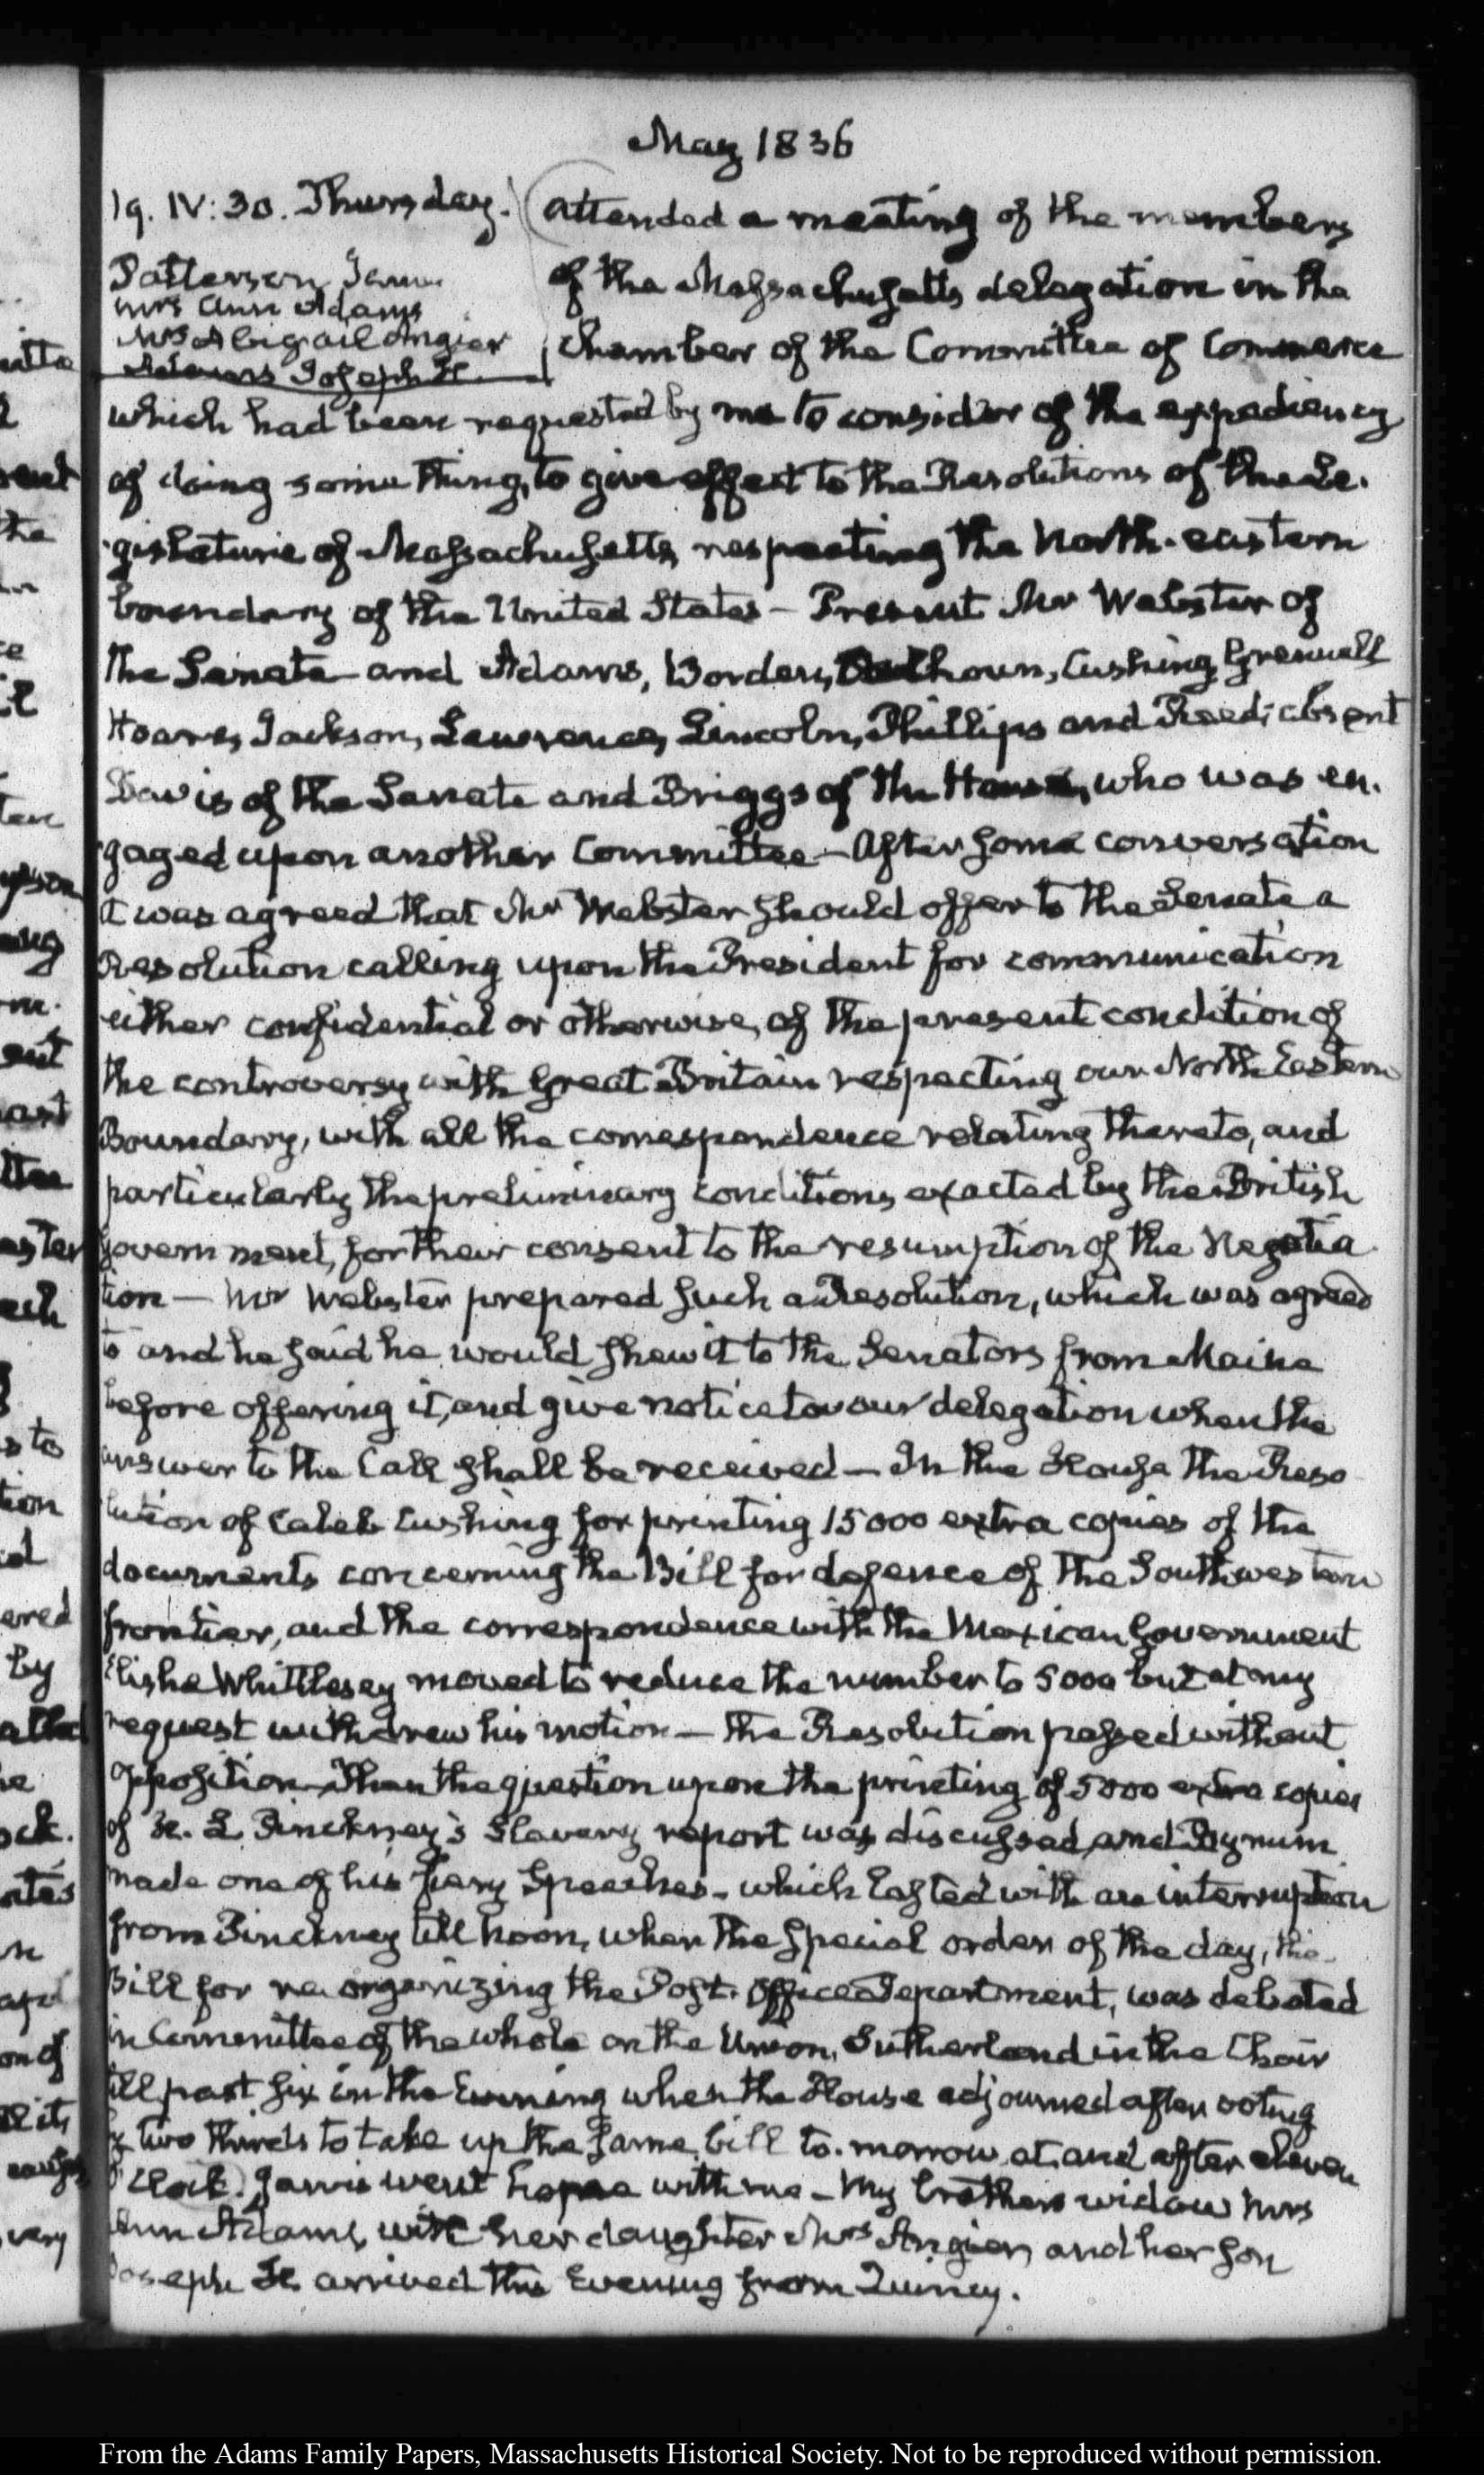 May 1836
19. IV:30. Thursday.
Patterson
Mrs Ann Adams
Mrs Abigail Angier
Adams Joseph H.
Attended a meeting of the members
of the Massachusetts delegation in the
chamber of the Committee of Commerce
which had been requested by me to consider of the expediency
of doing something, to give effect to the Resolutions of the Le-
gislature of Massachusetts, respecting the North-eastern
boundary of the United States – Present Mr Webster of
the Senate and Adams, Borden, Calhoun, Cushing, Grennell
Hoare, Jackson, Lawrence, Lincoln, Phillips and Reed; absent
Davis of the Senate and Briggs of the House, who was en-
gaged upon another Committee – After some conversation
it was agreed that Mr Webster should offer to the Senate a
Resolution calling upon the President for communication
either confidential or otherwise, of the present condition of
the controversy with Great Britain respecting our North Eastern
Boundary, with all the correspondence relating thereto, and
particularly the preliminary conditions exacted by the British
Government, for their consent to the resumption of the Negotia-
tion – Mr Webster prepared such a Resolution, which was agreed
to and he said he would shew it to the Senators from Maine
before offering it, and give notice to our delegation when the
answer to the Call shall be received – In the House the Reso-
lution of Caleb Cushing for printing 15000 extra copies of the
documents concerning the Bill for defence of the Southwestern
frontier, and the correspondence with the Mexican Government
Elisha Whittlesey moved to reduce the number to 5000 but at my
request withdrew his motion – the Resolution passed without
opposition. Then the question upon the printing of 5000 extra copies
of H. L. Pinckney's Slavery report was discussed, and Bynum
made one of his fiery Speeches – which lasted with an interruption
from Pinckney till noon, when the special order of the day, the
Bill for re-organizing the Post-Office Department, was debated
in Committee of the whole on the Union, Sutherland in the Chair
till past six in the Evening when the House adjourned after voting
by two thirds to take up the same bill to-morrow at and after eleven
O'Clock. Jarvis went home with me – My brother's widow Mrs
Ann Adams, with her daughter Mrs Angier, and her son
Joseph H. arrived this Evening from Quincy.
From the Adams Family Papers, Massachusetts Historical Society. Not to be reproduced without permission.